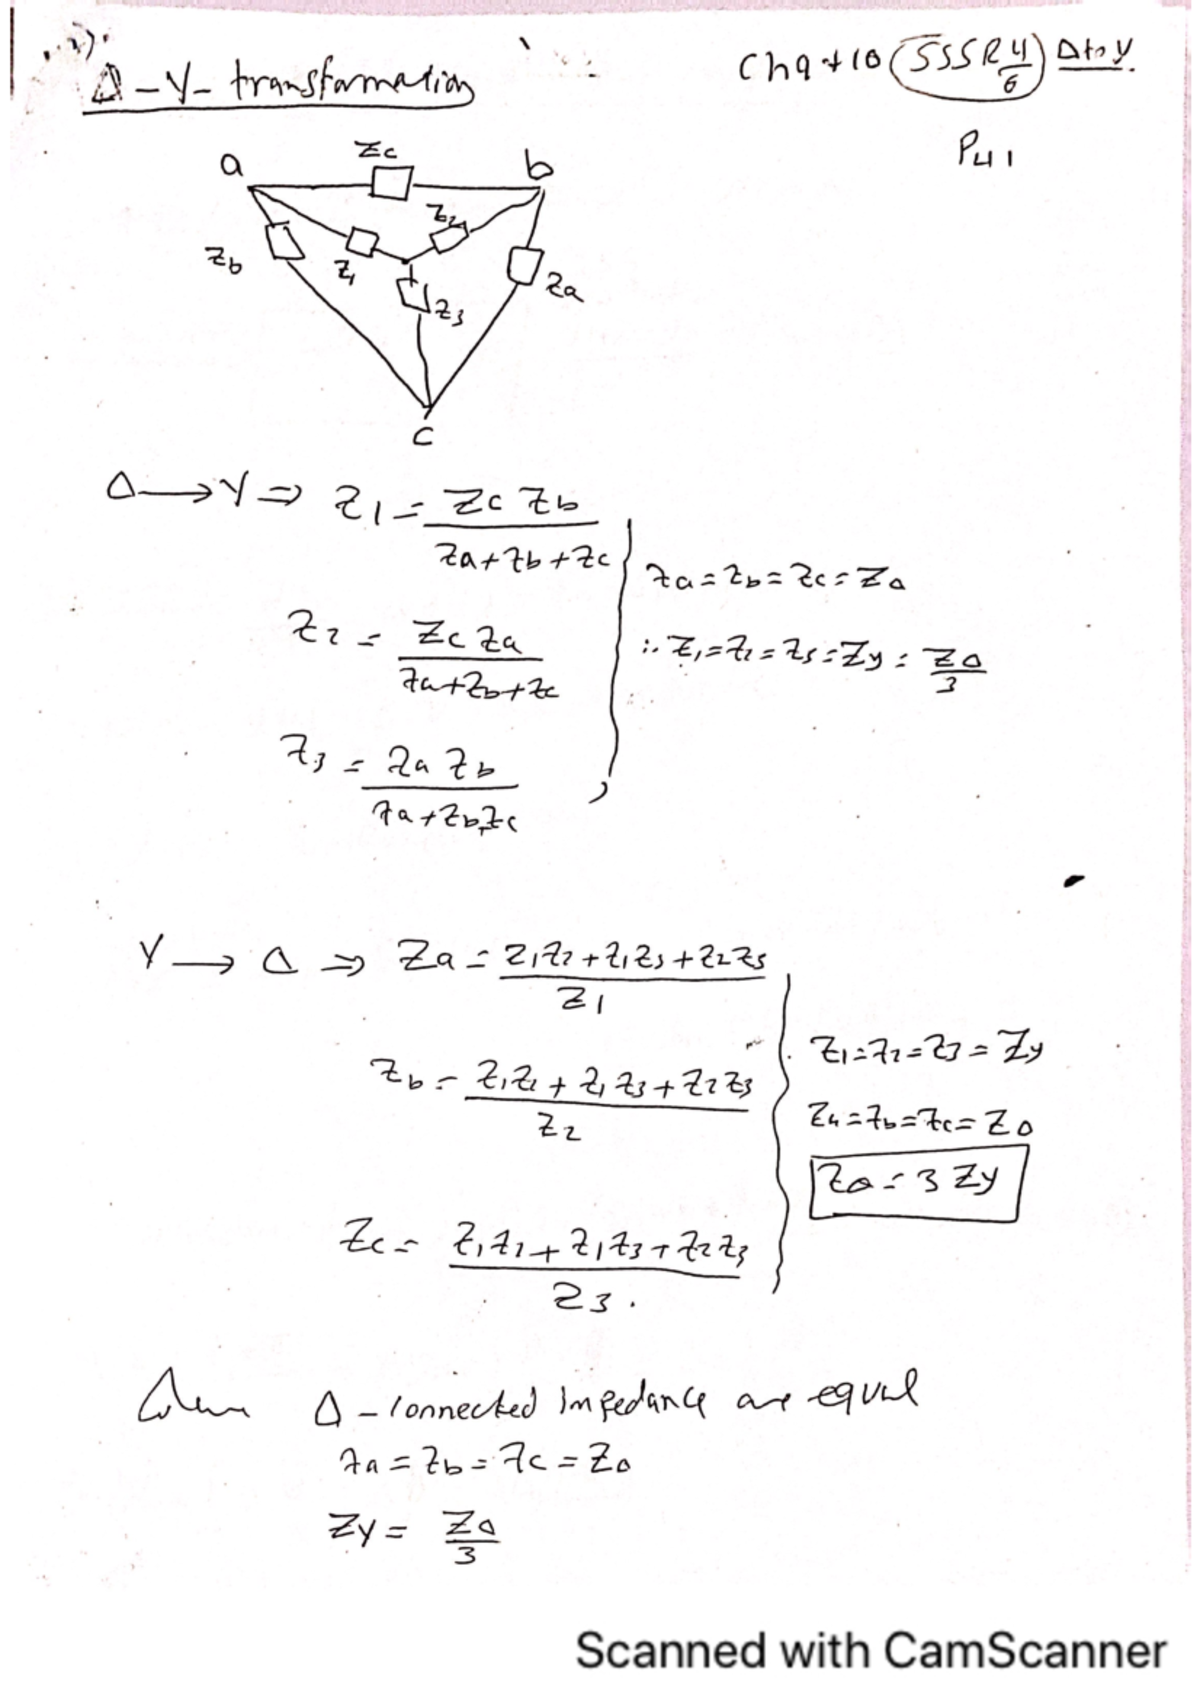 Δ-Y- transformation
Ch9+10 SSSR 4/6 Δ to Y.
P41
a Zc b
Zb Z1 Z2 Za
Z3
c
Δ → Y ⇒ Z1 = Zc Zb / Za+Zb+Zc
Z2 = Zc Za / Za+Zb+Zc
Z3 = Za Zb / Za+Zb+Zc
Za = Zb = Zc = ZΔ
∴ Z1 = Z2 = Z3 = ZY = ZΔ/3
Y → Δ ⇒ Za = Z1Z2 + Z1Z3 + Z2Z3 / Z1
Zb = Z1Z2 + Z1Z3 + Z2Z3 / Z2
Zc = Z1Z2 + Z1Z3 + Z2Z3 / Z3.
Z1 = Z2 = Z3 = Zy
Za = Zb = Zc = ZΔ
ZΔ = 3 Zy
Δ-connected Impedance are equal
Za = Zb = Zc = ZΔ
ZY = ZΔ/3
Scanned with CamScanner